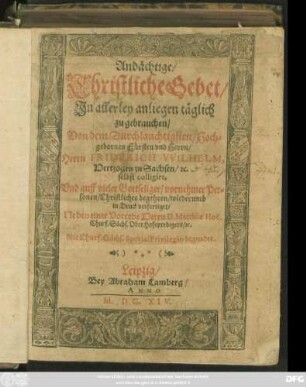 Andächtige/
Christliche Gebet/
In allerley anliegen täglich
zu gebrauchen/
Von dem Durchlauchtigsten/ Hoch-
gebornen Fürsten und Herrn/
Herrn FRIDRICH WILHELM,
Hertzogen zu Sachsen/ etc.
selbst colligirt,
Und auff vieler Gottseliger/ vornehmer Per-
sonen/ Christliches begehren/ wiederumb
in Druck verfertiget/
Neben einer Vorrede Herrn D. Matthiæ Hoë,
Churf. Sächs. Oberhofepredigers/ etc.
Mit Churf. Sächs. Special Privilegio begnadet.
Leipzig/
Bey Abraham Lamberg/
ANNO
M. D. C. XIV.